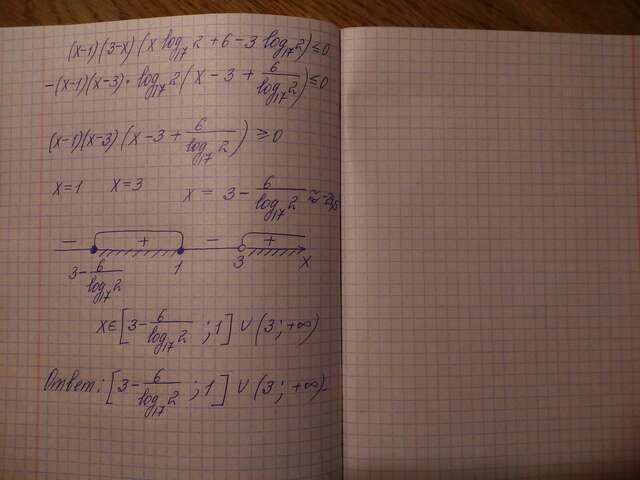 (x-1)(3-x)(x log₁₇2 + 6 - 3 log₁₇2) ≤ 0
-(x-1)(x-3) · log₁₇2 (x - 3 + 6/log₁₇2) ≤ 0
(x-1)(x-3)(x - 3 + 6/log₁₇2) ≥ 0
x=1 x=3 x = 3 - 6/log₁₇2 ≈
- + - +
3 - 6/log₁₇2 1 3 x
x∈[3 - 6/log₁₇2 ; 1] ∪ (3; +∞)
Ответ: [3 - 6/log₁₇2 ; 1] ∪ (3; +∞).